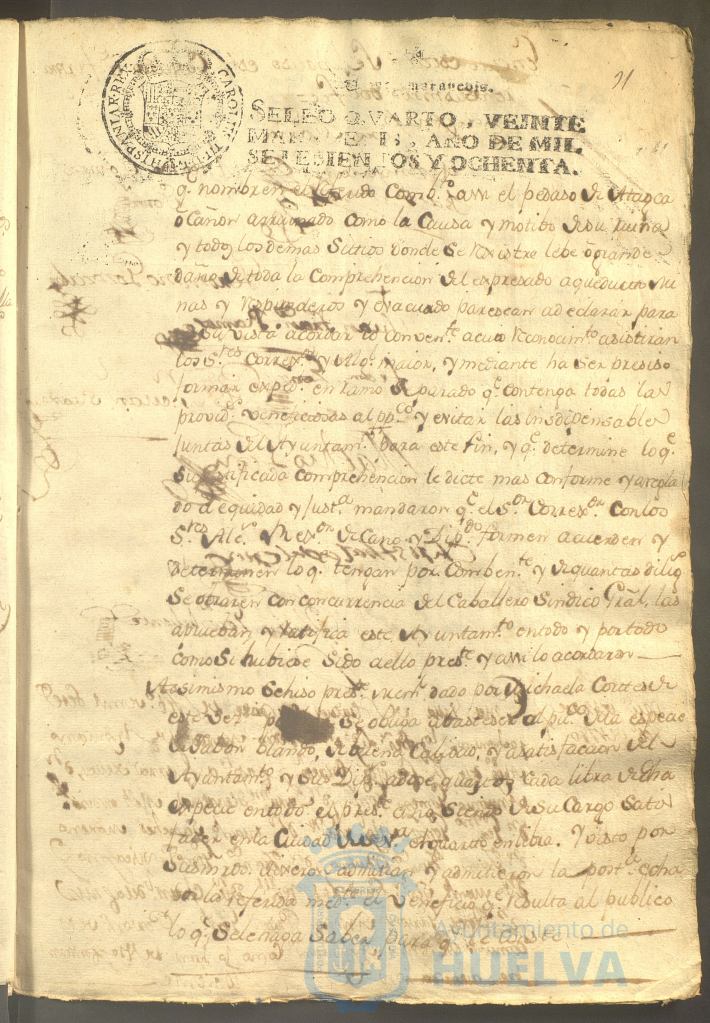 91
CAROLUS III D G HISPANIAR REX
SELLO QVARTO, VEINTE
MARAVEDIS, AÑO DE MIL
SETECIENTOS Y OCHENTA.
q.e nombren el referido Comb.te assi el pedaso de Ataxea
o Cañon arruinado como la Causa y motibo de su ruina
y todos los demas Sitios donde se rexistre lebe o grande
daño de toda la Comprehencion del expresado aqueducto, Mi
nas y Respiraderos y evacuado paresean a declarar para
en su vista acordar lo conven.te a cuio reconocim.to asistiran
los S.res Correx.or y Alc.e maior, y mediante ha ser presiso
formar exped.te en ramo separado q.e contenga todas las
provid.s beneficiosas al pp.co y evitar las indispensables
Juntas del Ayuntam.to para este fin, y q.e determine lo q.e
su justificada comprehencion le dicte mas conforme y arregla
do a equidad y Just.a mandaron q.e el S.or Correx.or con los
S.res Alc.e Rex.or de Cano y Dip.do formen acuerden y
determinen lo q.e tengan por comben.te y de quantas dilig.s
se obraren con concurrencia del Caballero Sindico Gral, las
aprueban y ratifica este Ayuntam.to en todo y por todo
como si hubiese sido a ello pres.te y assi lo acordaron
Assimismo se hiso pres.te mem.l dado por Michaela Cortes de
este Vez.o se obliga abasteser al pu.co de la especie
de Jabon blando, de buena Calidad, y a satisfaccion del
Ayuntam.to y sus Dip.dos a quartos cada libra de dha
especie en todo el pres.te año siendo de su Cargo Satis
facer en la Ciudad el quarto en libra. Y visto por
sus mrds. dixeron admitian y admitieron la post.a echa
por la referida med.te el beneficio q.e resulta al publico
lo q.e se le haga saber para q.e le conste
Ayuntamiento de
HUELVA